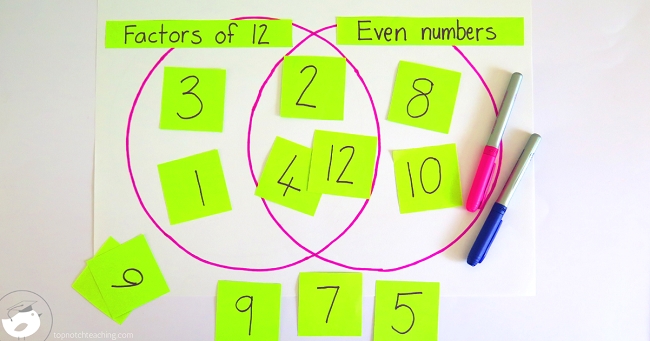 Factors of 12
Even numbers
3
2
8
1
4
12
10
6
9
7
5
topnotchteaching.com